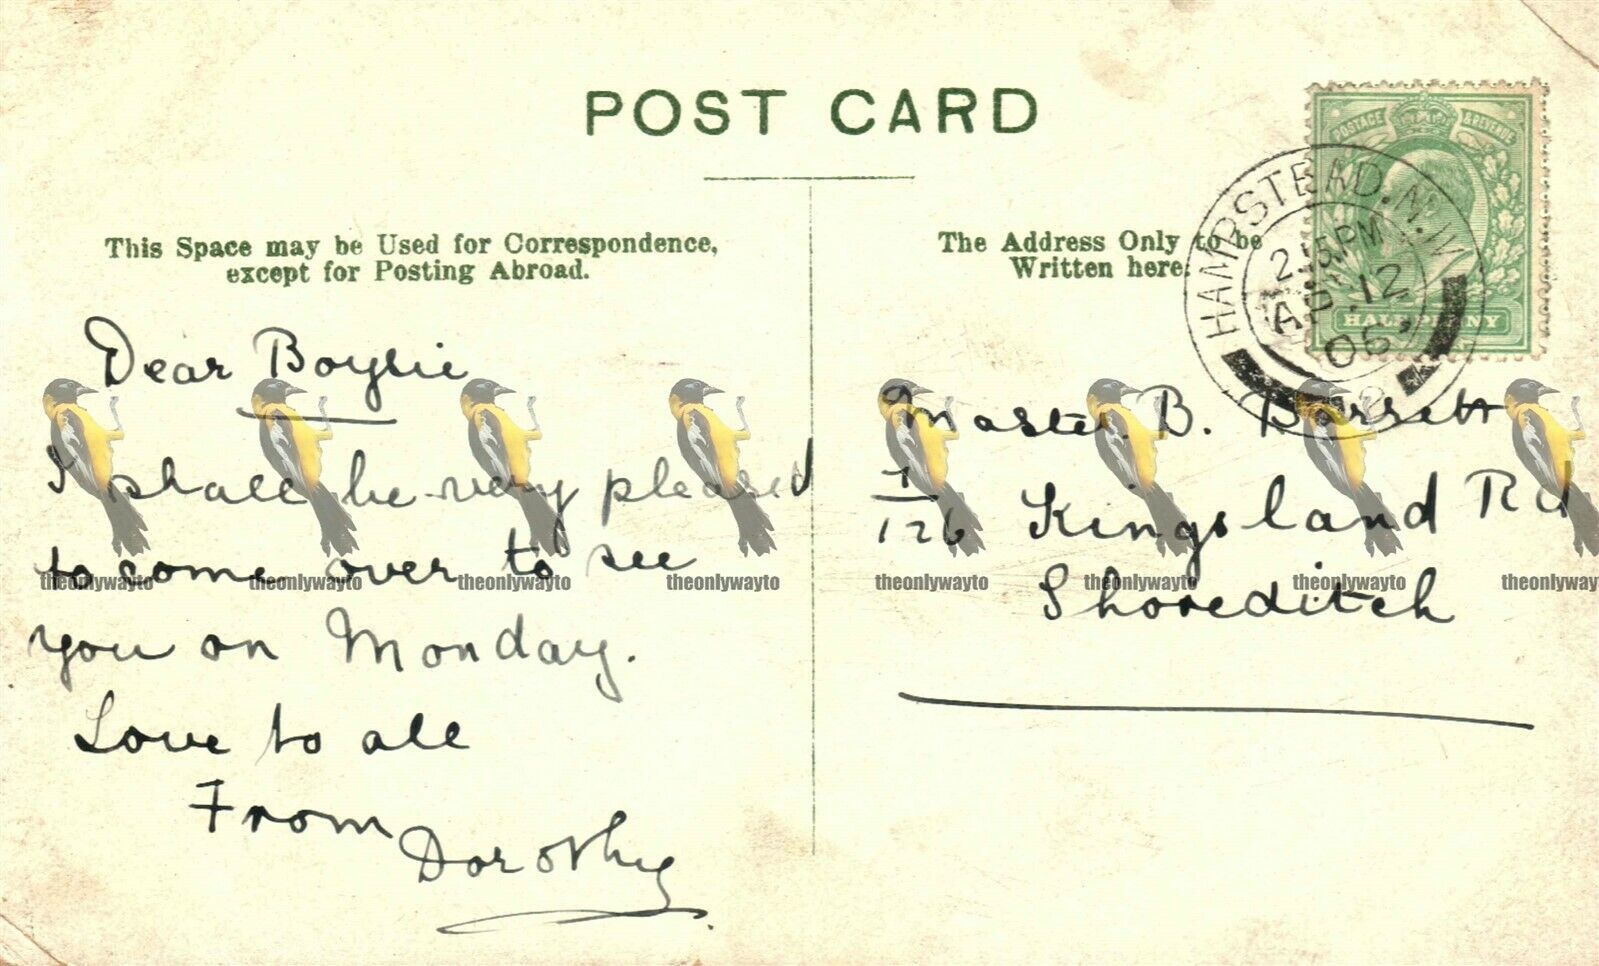 POST CARD
This Space may be Used for Correspondence,
except for Posting Abroad.
Dear Boysie
I shall be very pleased
to come over to see
you on Monday.
Love to all
From
Dorothy
The Address Only to be
Written here.
POSTAGE & REVENUE
HALFPENNY
HAMPSTEAD. N.W
2.15PM
12
06
2
Master. B. Barrett
1/126 Kingsland Rd
Shoreditch
theonlywayto theonlywayto theonlywayto theonlywayto theonlywayto theonlywayto theonlywayto theonlywayto